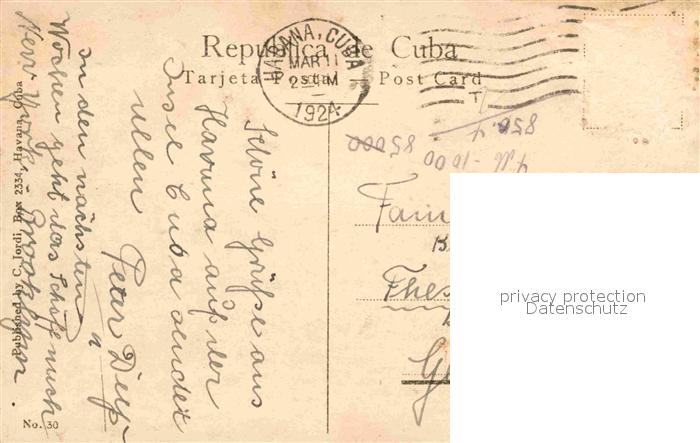 Republica de Cuba
Tarjeta Postal — Post Card
HAVANA, CUBA
MAR 11
1924
T
850.4
85000
4 M - 1000
Schöne Grüße aus
Havana auf der
Insel Cuba sendet
allen
Peter Diep
in den nächsten
Wochen geht das Schiff nach
New York
Published by C. Jordi, Box 2334, Havana, Cuba
No. 30
Fam
Thes
privacy protection
Datenschutz